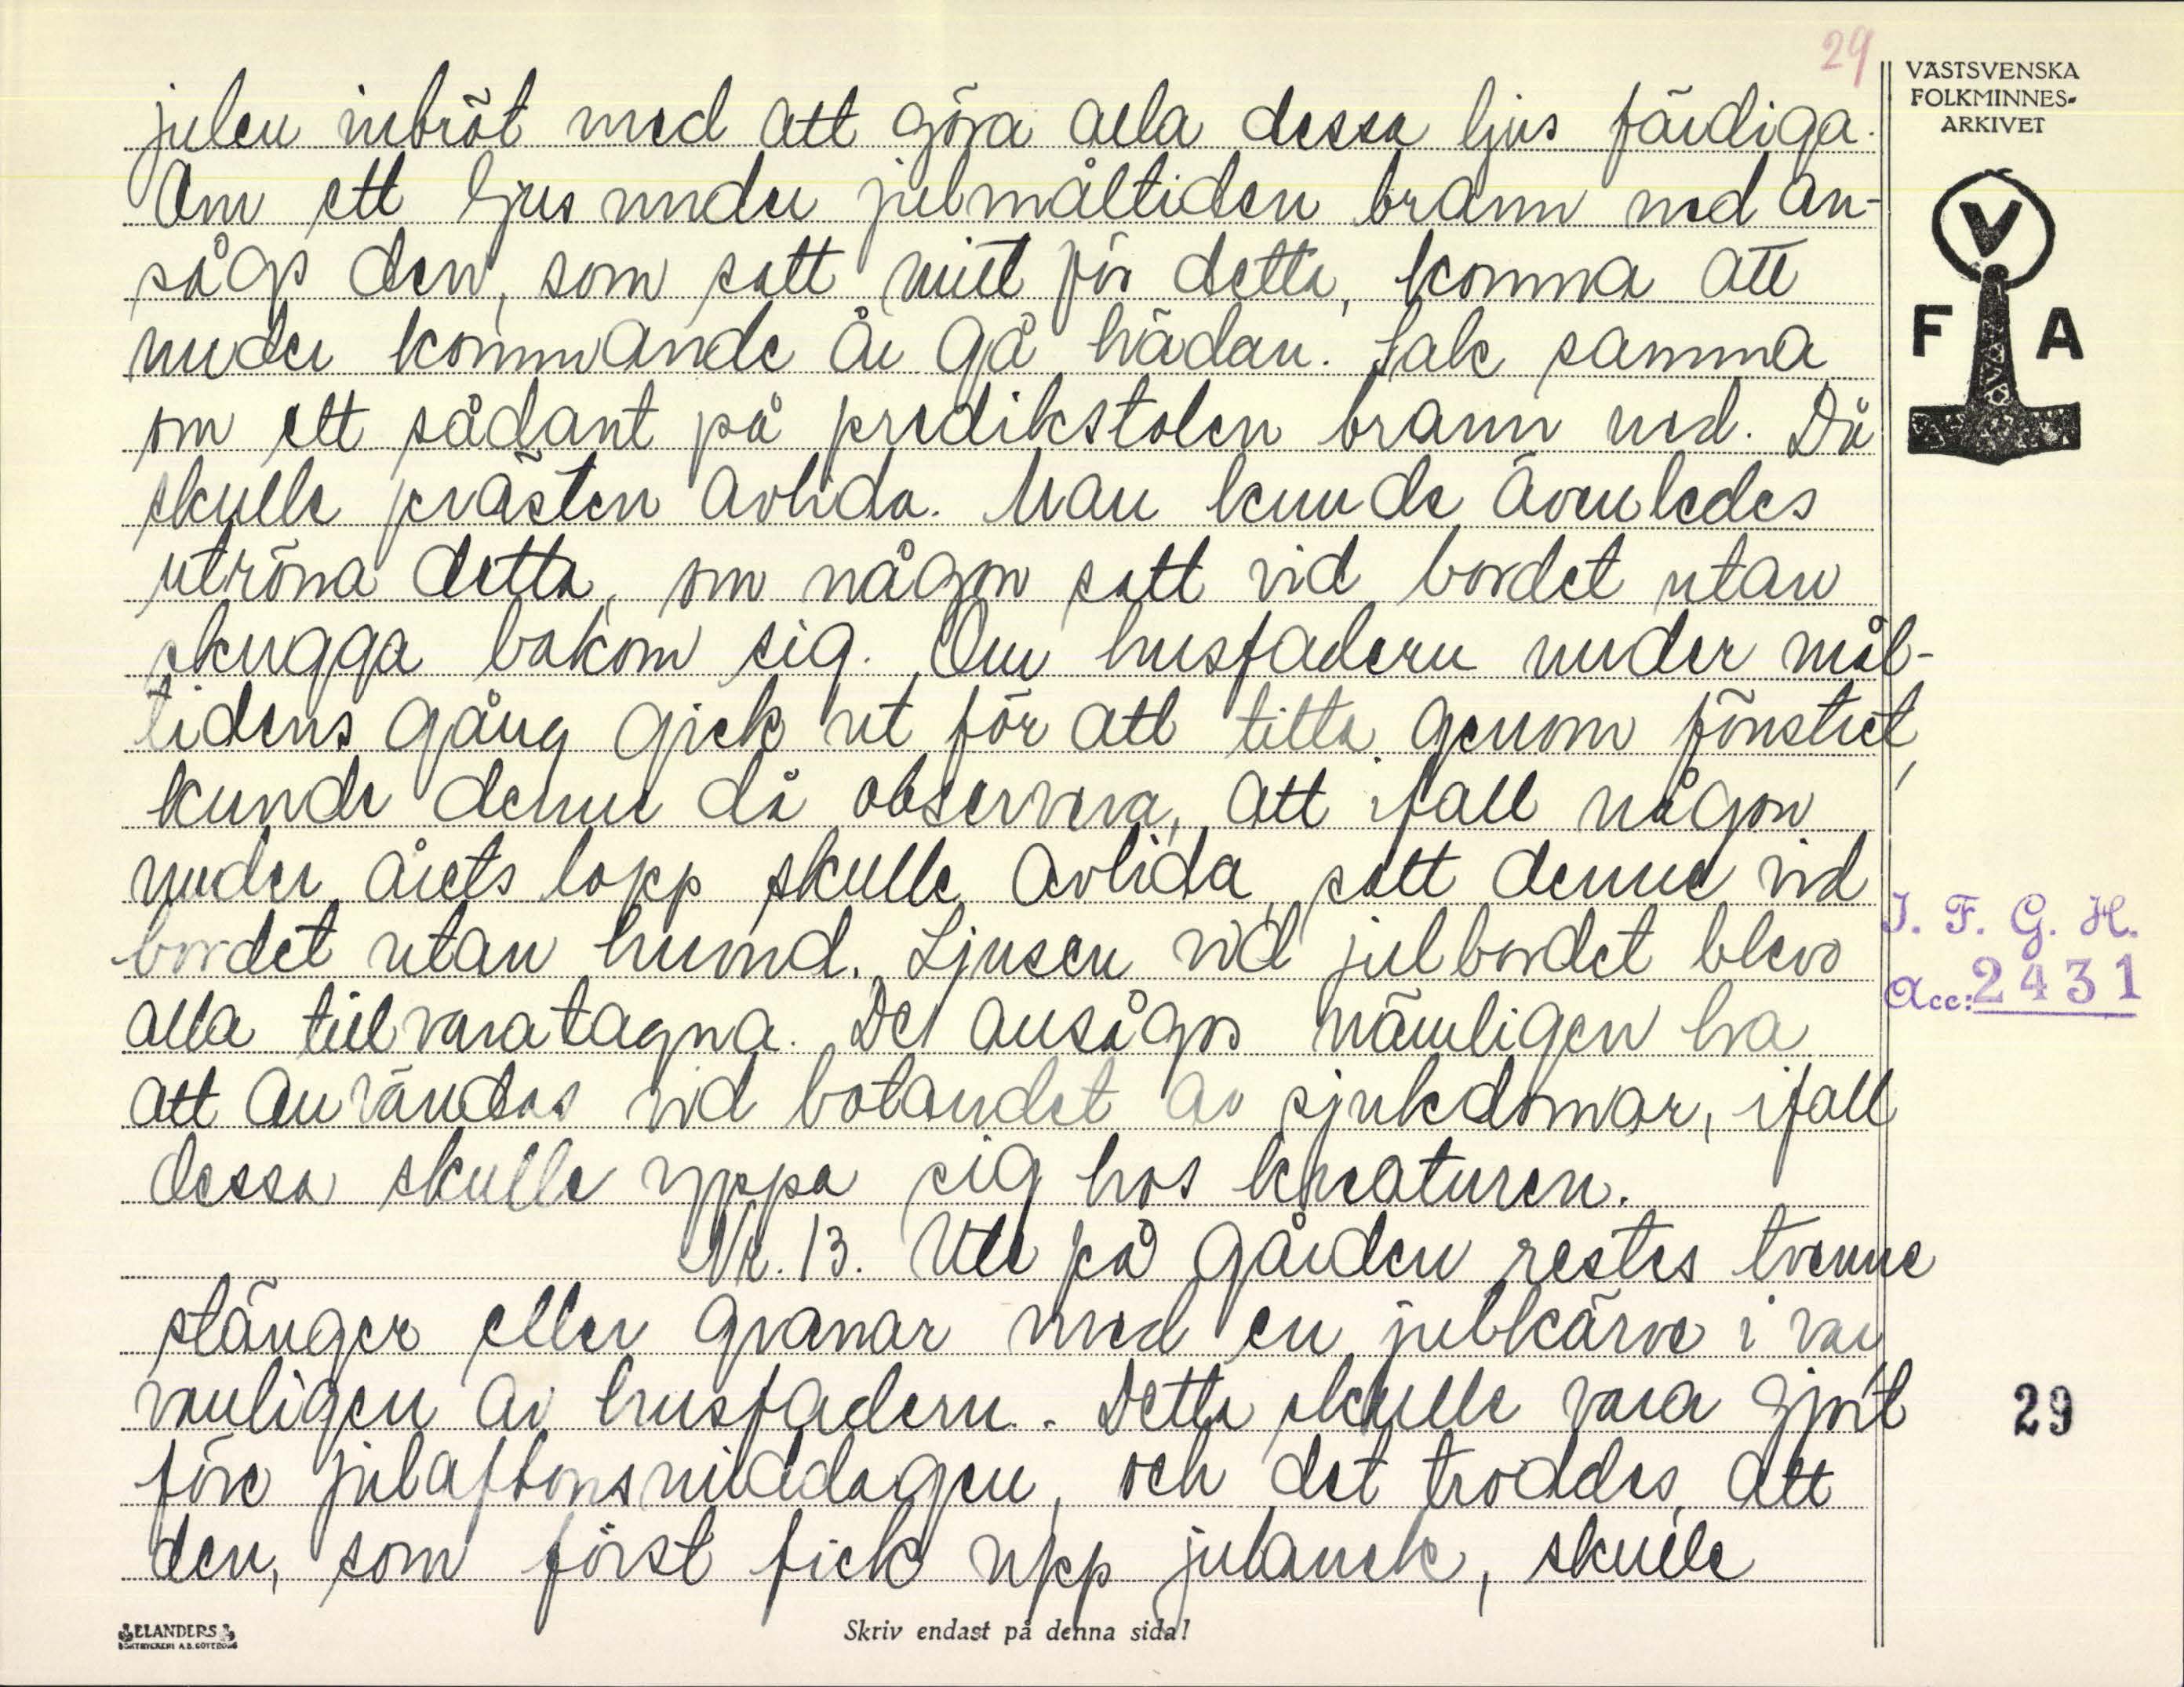 29
VÄSTSVENSKA
FOLKMINNES-
ARKIVET
V
F A
julen inbröt med att göra alla dessa ljus färdiga.
Om ett ljus under julmåltiden brann ned an-
sågs den, som satt mitt för detta, komma att
under kommande år gå hädan. Sak samma
om ett sådant på predikstolen brann ned. Då
skulle prästen avlida. Man kunde ävenledes
utröna detta, om någon satt vid bordet utan
skugga bakom sig. Om husfadern under mål-
tidens gång gick ut för att titta genom fönstret,
kunde denne då observera, att ifall någon
under årets lopp skulle avlida, satt denne vid
bordet utan huvud. Ljusen vid julbordet blevo
alla tillvaratagna. De ansågos nämligen bra
att användas vid botandet av sjukdomar, ifall
dessa skulle yppa sig hos kreaturen.
Nr. 13. Ute på gården restes tvenne
stänger eller granar med en julkärve i var
vanligen av husfadern. Detta skulle vara gjort
före julaftonsmiddagen, och det troddes, att
den, som först fick upp julanek, skulle
I. F. G. H.
Acc: 2431
29
ELANDERS
BOKTRYCKERI A.B. GÖTEBORG
Skriv endast på denna sida!